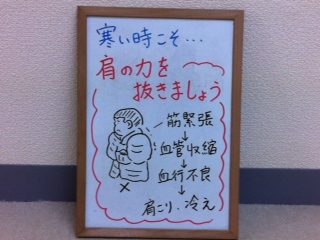 寒い時こそ…
肩の力を
抜きましょう
筋緊張
↓
血管収縮
↓
血行不良
↓
肩こり、冷え
×